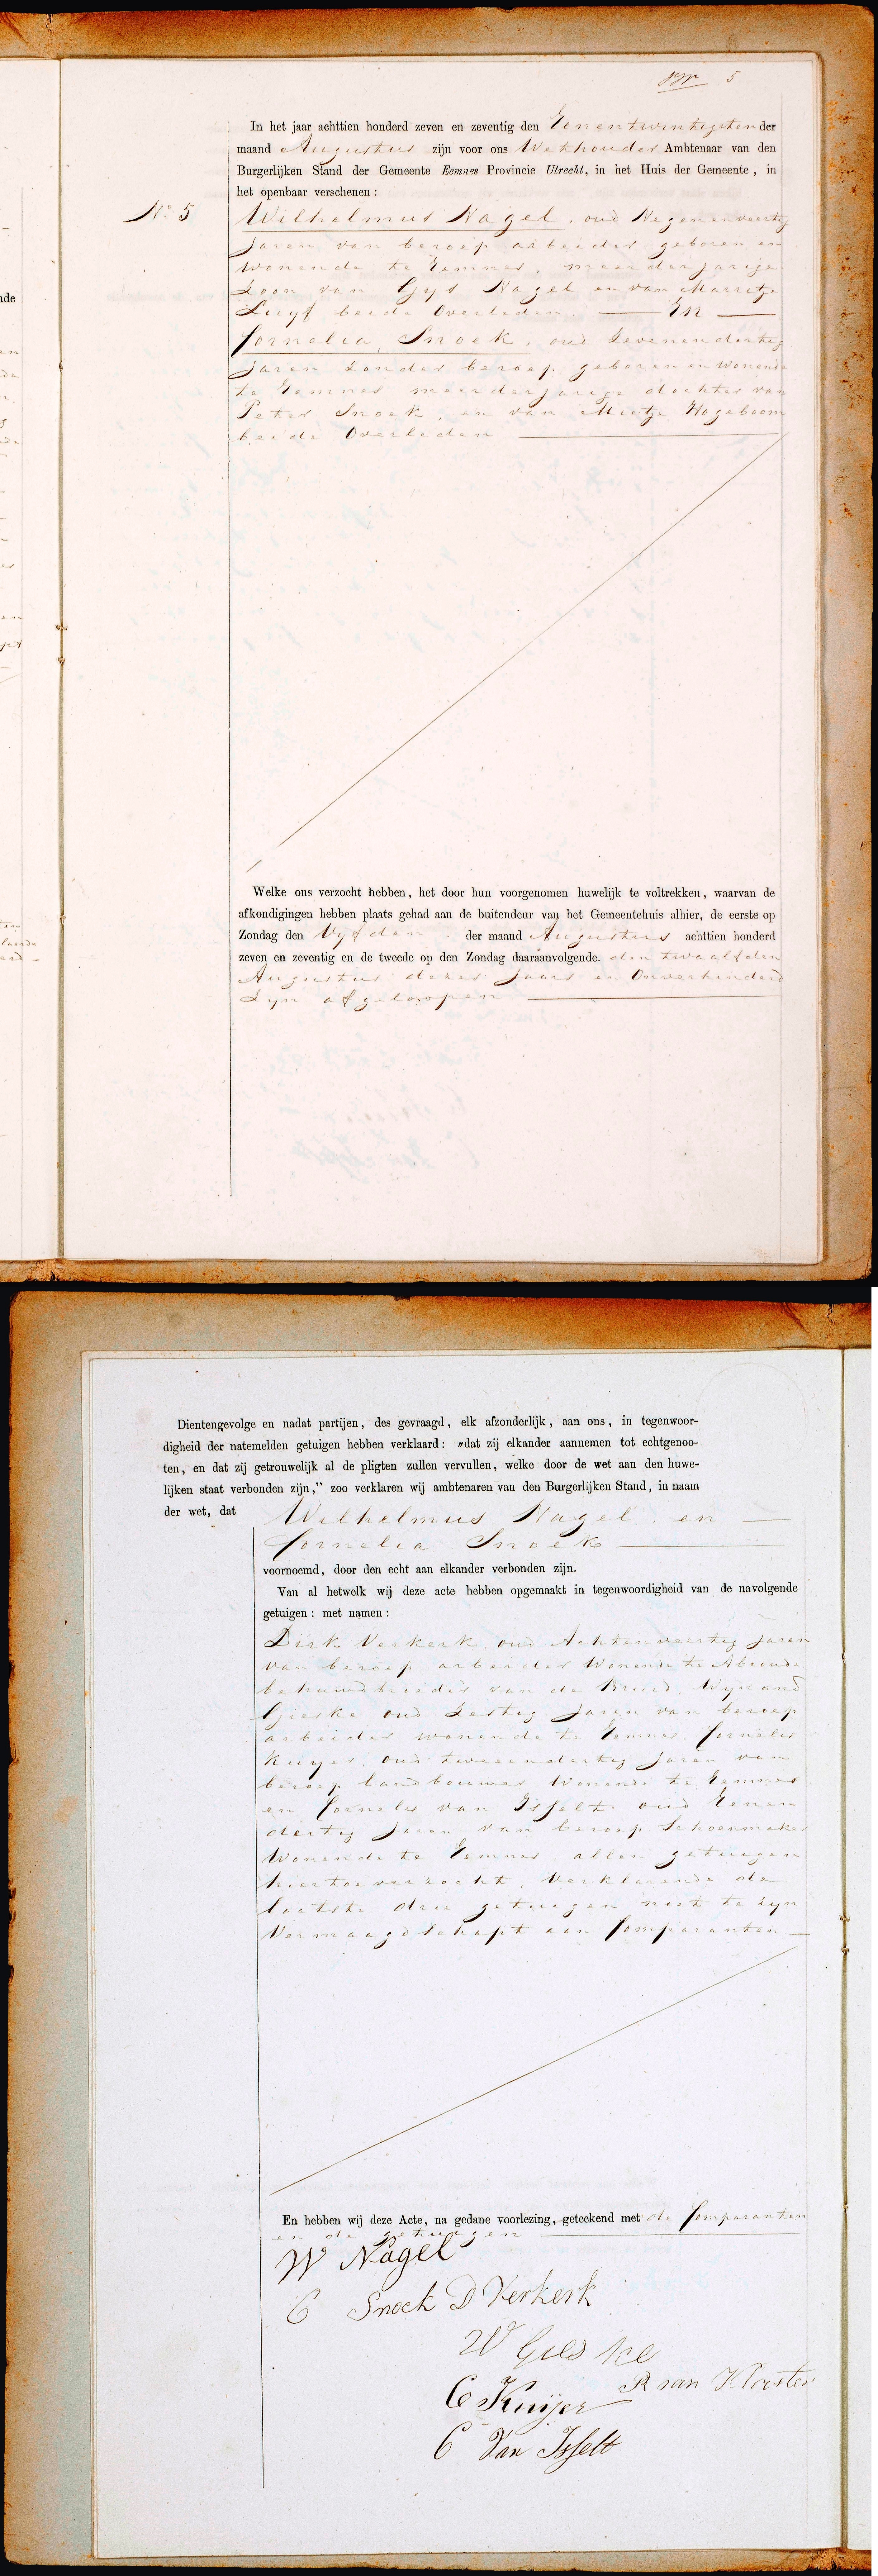 5
In het jaar achttien honderd zeven en zeventig den Eenentwintigsten der
maand Augustus zijn voor ons Wethouder Ambtenaar van den
Burgerlijken Stand der Gemeente Eemnes Provincie Utrecht, in het Huis der Gemeente, in
het openbaar verschenen :
No 5
Wilhelmus Nagel, oud Negenenveertig
Jaren van beroep arbeider geboren en
Wonende te Eemnes, meerderjarige
Zoon van Gijs Nagel en van Marritje
Luijf beide Overleden. En
Cornelia Snoek, oud Zevenendertig
Jaren zonder beroep geboren en wonende
te Eemnes meerderjarige dochter van
Peter Snoek, en van Mietje Hogeboom
beide Overleden
Welke ons verzocht hebben, het door hun voorgenomen huwelijk te voltrekken, waarvan de
afkondigingen hebben plaats gehad aan de buitendeur van het Gemeentehuis alhier, de eerste op
Zondag den Vyfden der maand Augustus achttien honderd
zeven en zeventig en de tweede op den Zondag daaraanvolgende. den twaalfden
Augustus dezes Jaars en Onverhinderd
Zyn afgeloopen.
Dientengevolge en nadat partijen, des gevraagd, elk afzonderlijk, aan ons, in tegenwoor-
digheid der natemelden getuigen hebben verklaard: „dat zij elkander aannemen tot echtgenoo-
ten, en dat zij getrouwelijk al de pligten zullen vervullen, welke door de wet aan den huwe-
lijken staat verbonden zijn,” zoo verklaren wij ambtenaren van den Burgerlijken Stand, in naam
der wet, dat Wilhelmus Nagel en
Cornelia Snoek
voornoemd, door den echt aan elkander verbonden zijn.
Van al hetwelk wij deze acte hebben opgemaakt in tegenwoordigheid van de navolgende
getuigen : met namen :
Dirk Verkerk, oud Achtenveertig Jaren
van beroep arbeider Wonende te Abcoude
behuwdbroeder van de Bruid, Wynand
Gieske oud Zestig Jaren van beroep
arbeider wonende te Eemnes, Cornelis
Kuyer, oud tweeendertig Jaren van
beroep landbouwer Wonende te Eemnes
en Cornelis van Isselt oud Eenen
dertig Jaren van beroep Schoenmaker
Wonende te Eemnes, allen getuigen
hiertoe verzocht, Verklarende de
laatste drie getuigen niet te zyn
Vermaagdschapt aan Comparanten
En hebben wij deze Acte, na gedane voorlezing, geteekend met de Comparanten
en de getuigen
W Nagel
C Snoek D Verkerk
W Gieske
R van Klooster
C Kuijer
C Van Isselt